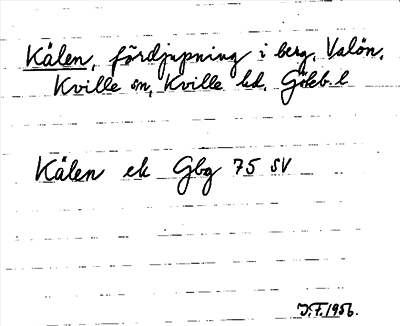 Kälen, fördjupning i berg, Valön,
Kville sn, Kville hd, Göteb. l
Kälen ek Gbg 75 SV
J.F. 1956.